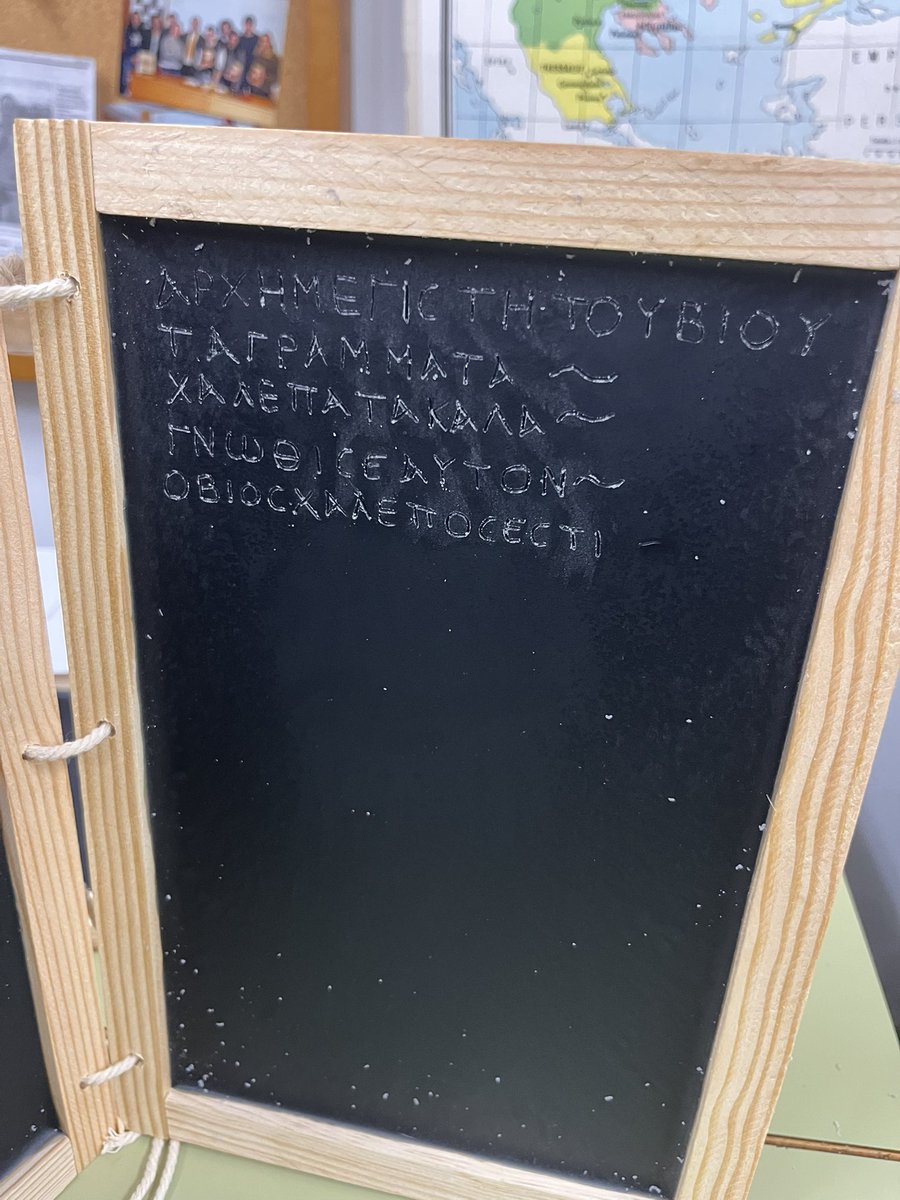 ΑΡΧΗΜΕΓΙϹΤΗ·ΤΟΥΒΙΟΥ
ΤΑΓΡΑΜΜΑΤΑ ~
ΧΑΛΕΠΑΤΑΚΑΛΑ ~
ΓΝΩΘΙϹΕΑΥΤΟΝ~
ΟΒΙΟϹΧΑΛΕΠΟϹΕϹΤΙ -